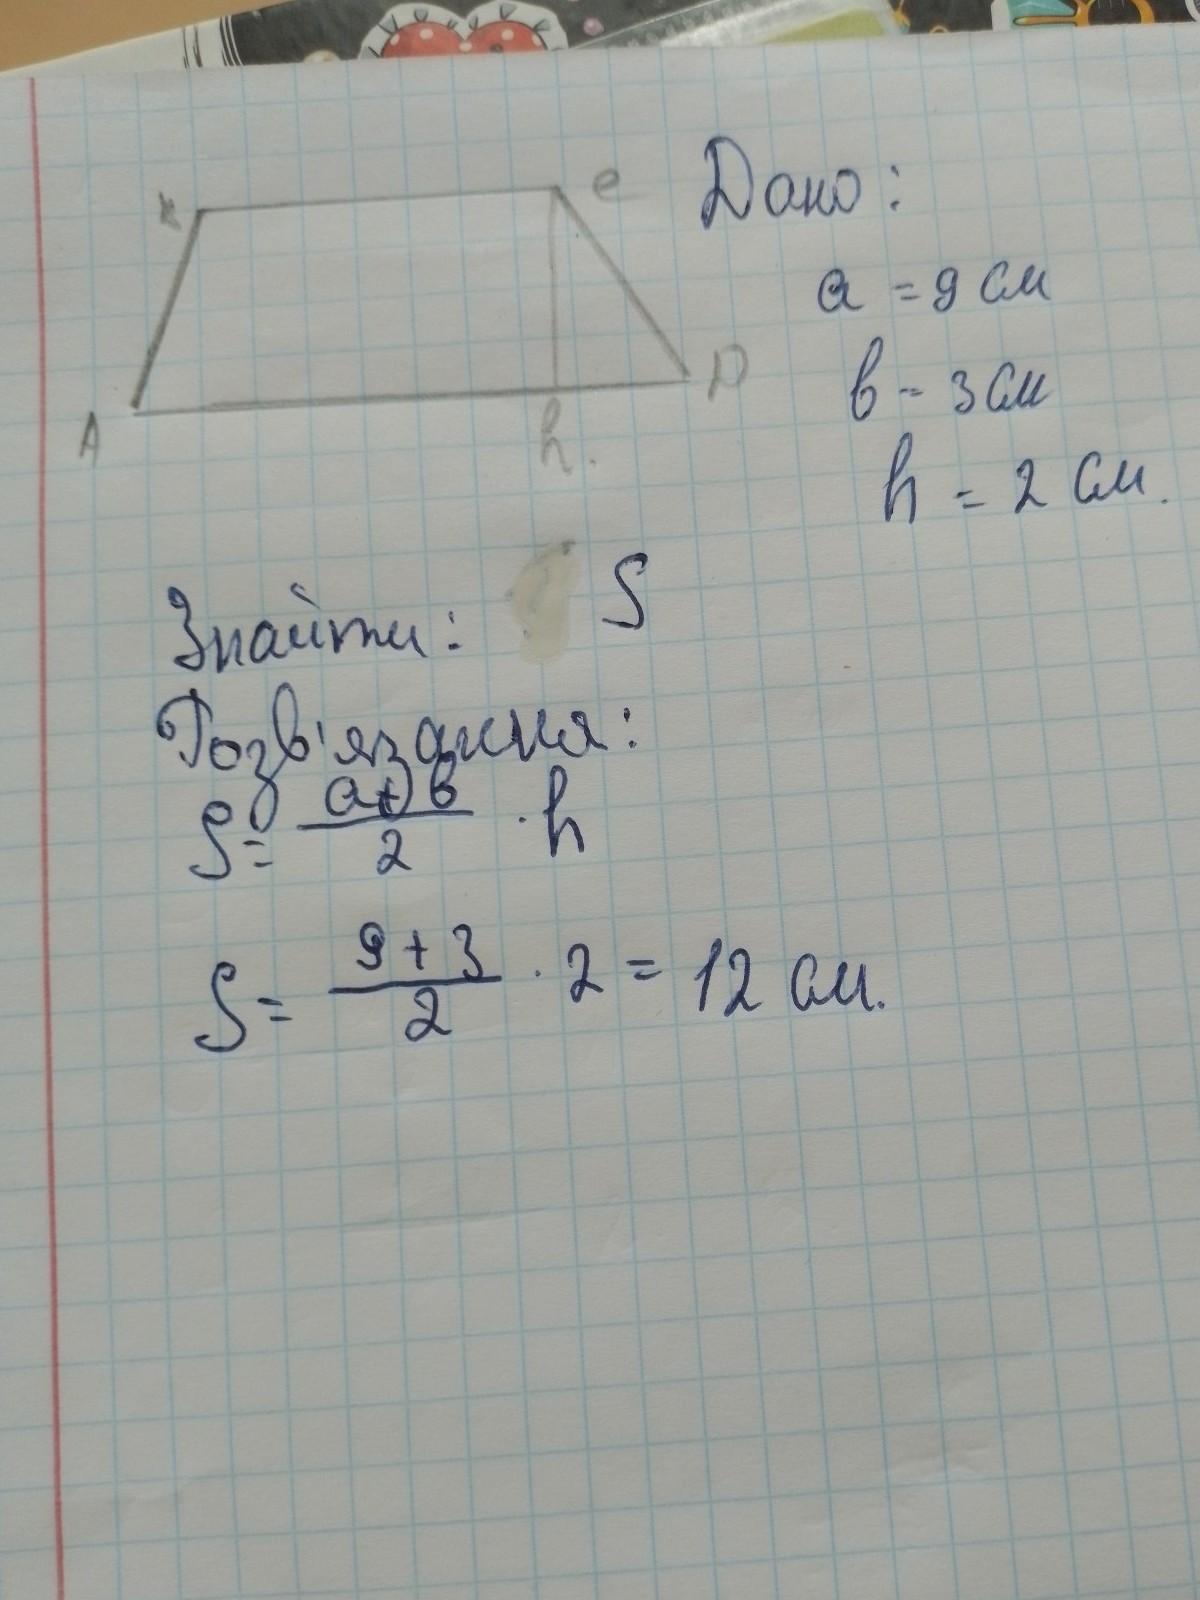 к е
A h. D
Дано:
a = 9 см
в - 3 см
h = 2 см.
Знайти: S
Розв'язання:
S = a+b/2 · h
S = 9+3/2 · 2 = 12 см.